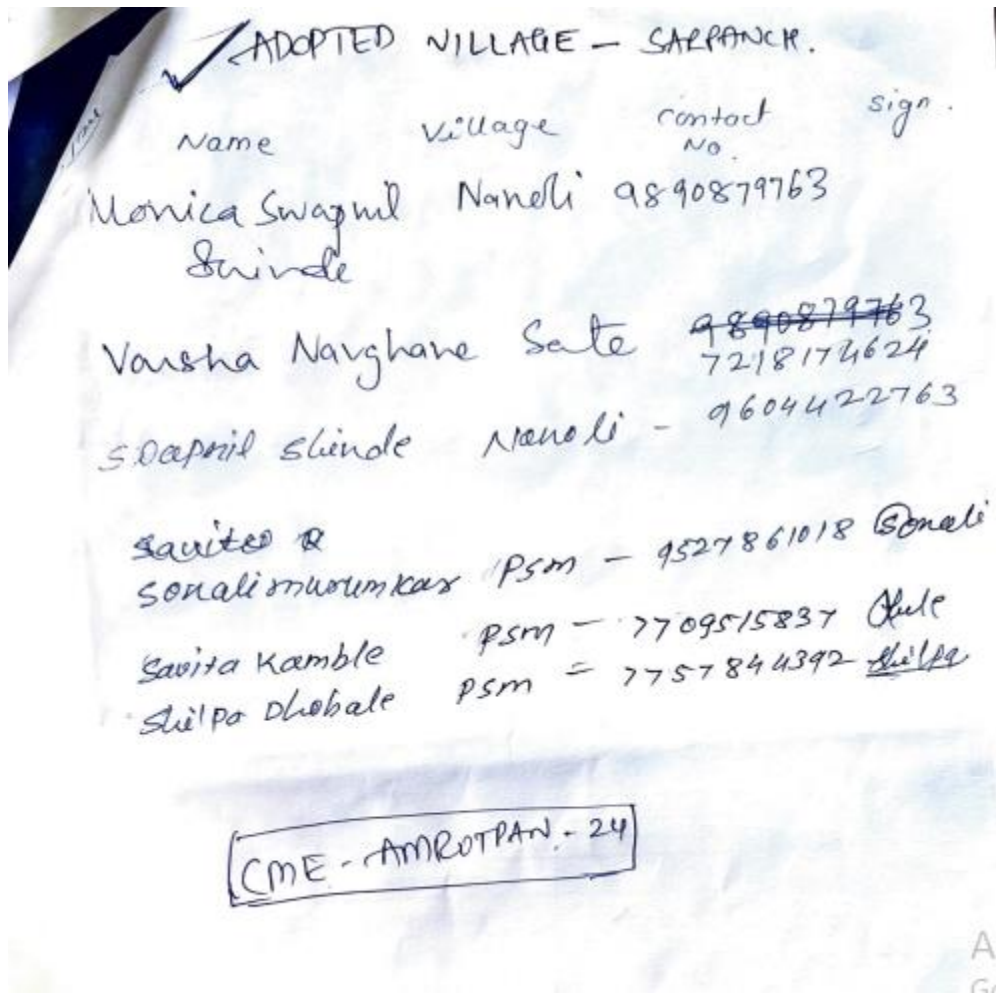 ADOPTED VILLAGE - SARPANCH.
Name Village contact No. sign.
Monica Swapnil Nanoli 9890879763
Shinde
Varsha Navghane Sate 9890879763
7218174624
Swapnil Shinde Nanoli - 9604422763
Savita
Sonali murumkar PSM - 9527861018 Sonali
Savita Kamble PSM - 7709515837
Shilpa Dhobale PSM = 7757844392 Shilpa
CME - AMROTPAN - 24